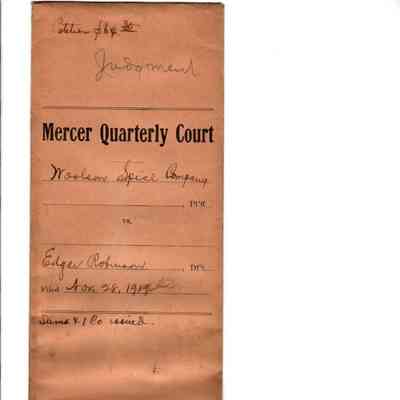 Petition $64 30
Judgment
Mercer Quarterly Court
Woolson Spice Company
, Pltff.
vs.
Edgar Robinson , Dft.
Filed Nov 28, 1919
Sums & 1 Co issued.